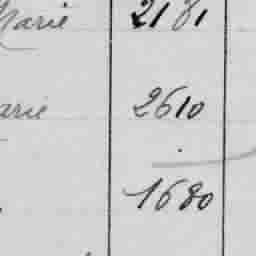 Marie 2181
arie 2610
1680